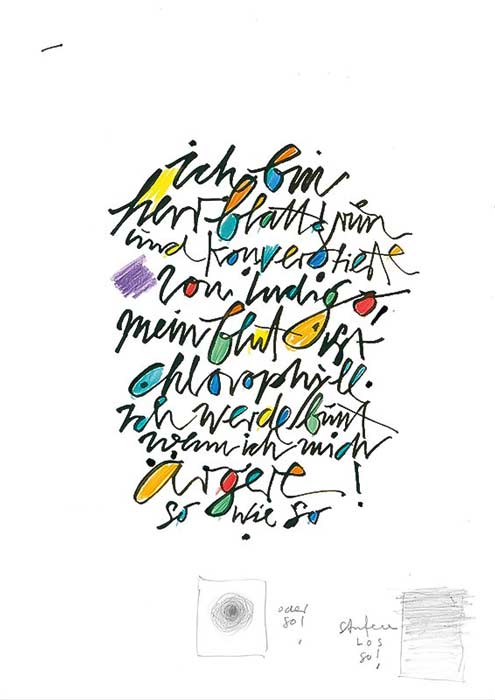 ich bin
herr blattgrün
und konvertierte
von indigo,
mein blut ist
chlorophyll.
ich werde bunt
wenn ich mich
ärgere!
so wie so
oder
so!
Stufen
LOS
so!